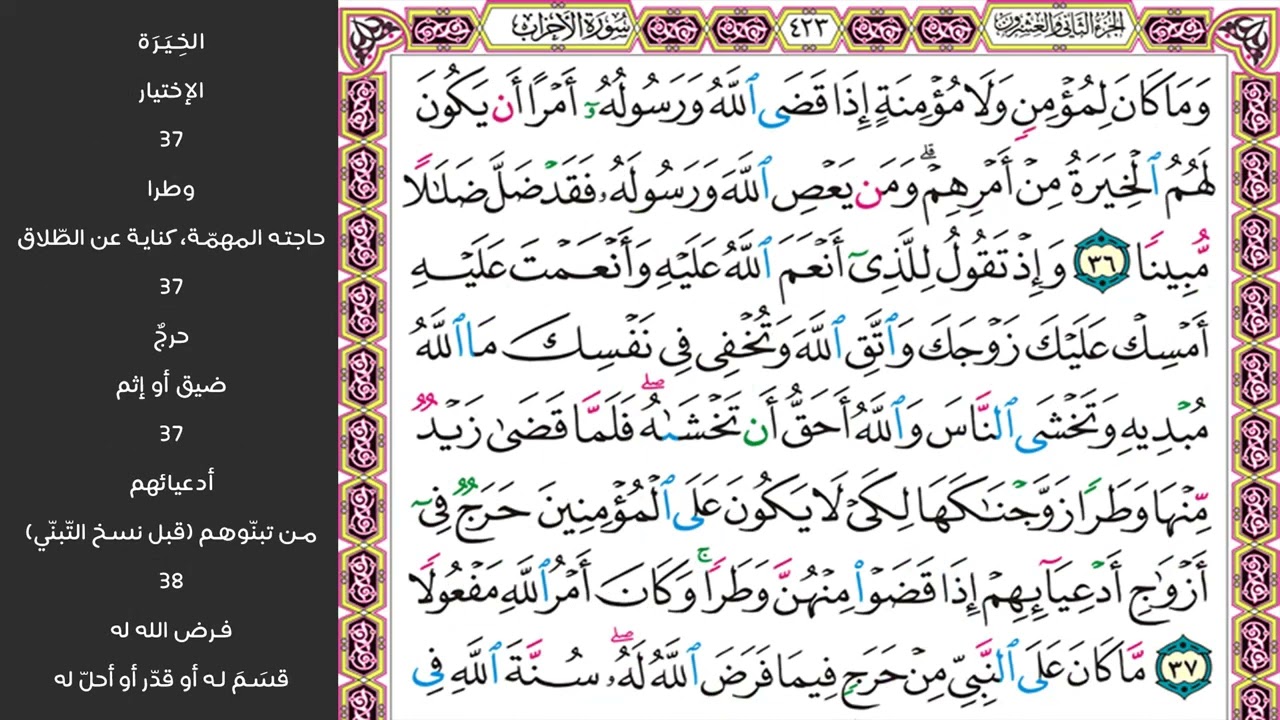 الجزء الثاني والعشرون
٤٢٣
سورة الأحزاب
وَمَا كَانَ لِمُؤْمِنٍ وَلَا مُؤْمِنَةٍ إِذَا قَضَى ٱللَّهُ وَرَسُولُهُۥٓ أَمْرًا أَن يَكُونَ
لَهُمُ ٱلْخِيَرَةُ مِنْ أَمْرِهِمْ ۗ وَمَن يَعْصِ ٱللَّهَ وَرَسُولَهُۥ فَقَدْ ضَلَّ ضَلَـٰلًا
مُّبِينًا ٣٦ وَإِذْ تَقُولُ لِلَّذِىٓ أَنْعَمَ ٱللَّهُ عَلَيْهِ وَأَنْعَمْتَ عَلَيْهِ
أَمْسِكْ عَلَيْكَ زَوْجَكَ وَٱتَّقِ ٱللَّهَ وَتُخْفِى فِى نَفْسِكَ مَا ٱللَّهُ
مُبْدِيهِ وَتَخْشَى ٱلنَّاسَ وَٱللَّهُ أَحَقُّ أَن تَخْشَىٰهُ ۖ فَلَمَّا قَضَىٰ زَيْدٌ
مِّنْهَا وَطَرًا زَوَّجْنَـٰكَهَا لِكَىْ لَا يَكُونَ عَلَى ٱلْمُؤْمِنِينَ حَرَجٌ فِىٓ
أَزْوَٰجِ أَدْعِيَآئِهِمْ إِذَا قَضَوْا۟ مِنْهُنَّ وَطَرًا ۚ وَكَانَ أَمْرُ ٱللَّهِ مَفْعُولًا
٣٧ مَّا كَانَ عَلَى ٱلنَّبِىِّ مِنْ حَرَجٍ فِيمَا فَرَضَ ٱللَّهُ لَهُۥ ۖ سُنَّةَ ٱللَّهِ فِى
الخِيَرَة
الإختيار
37
وطرا
حاجته المهمّة، كناية عن الطّلاق
37
حرجٌ
ضيق أو إثم
37
أدعيائهم
من تبنّوهم (قبل نسخ التّبنّي)
38
فرض الله له
قسَمَ له أو قدّر أو أحلّ له